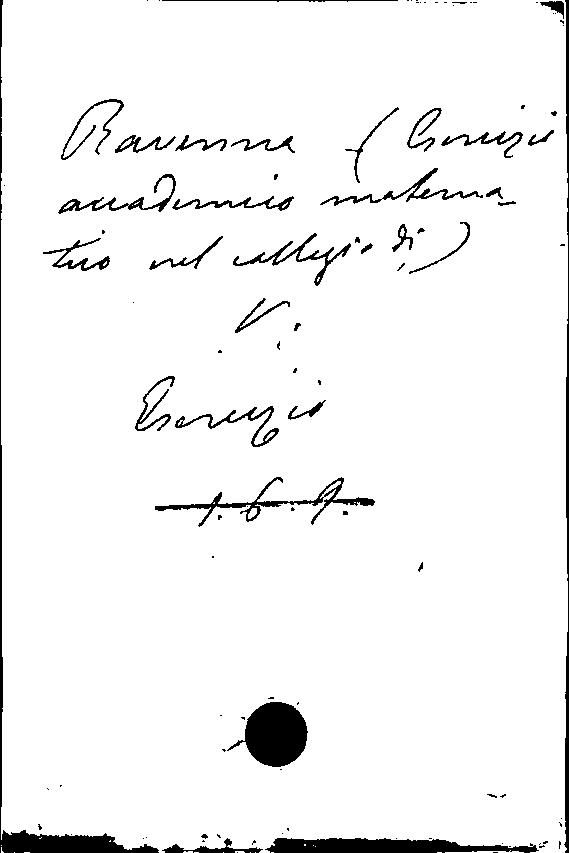 Ravenna (Esercizio
accademico matema-
tico nel collegio di)
V.
Esercizio
1. 6. 9.